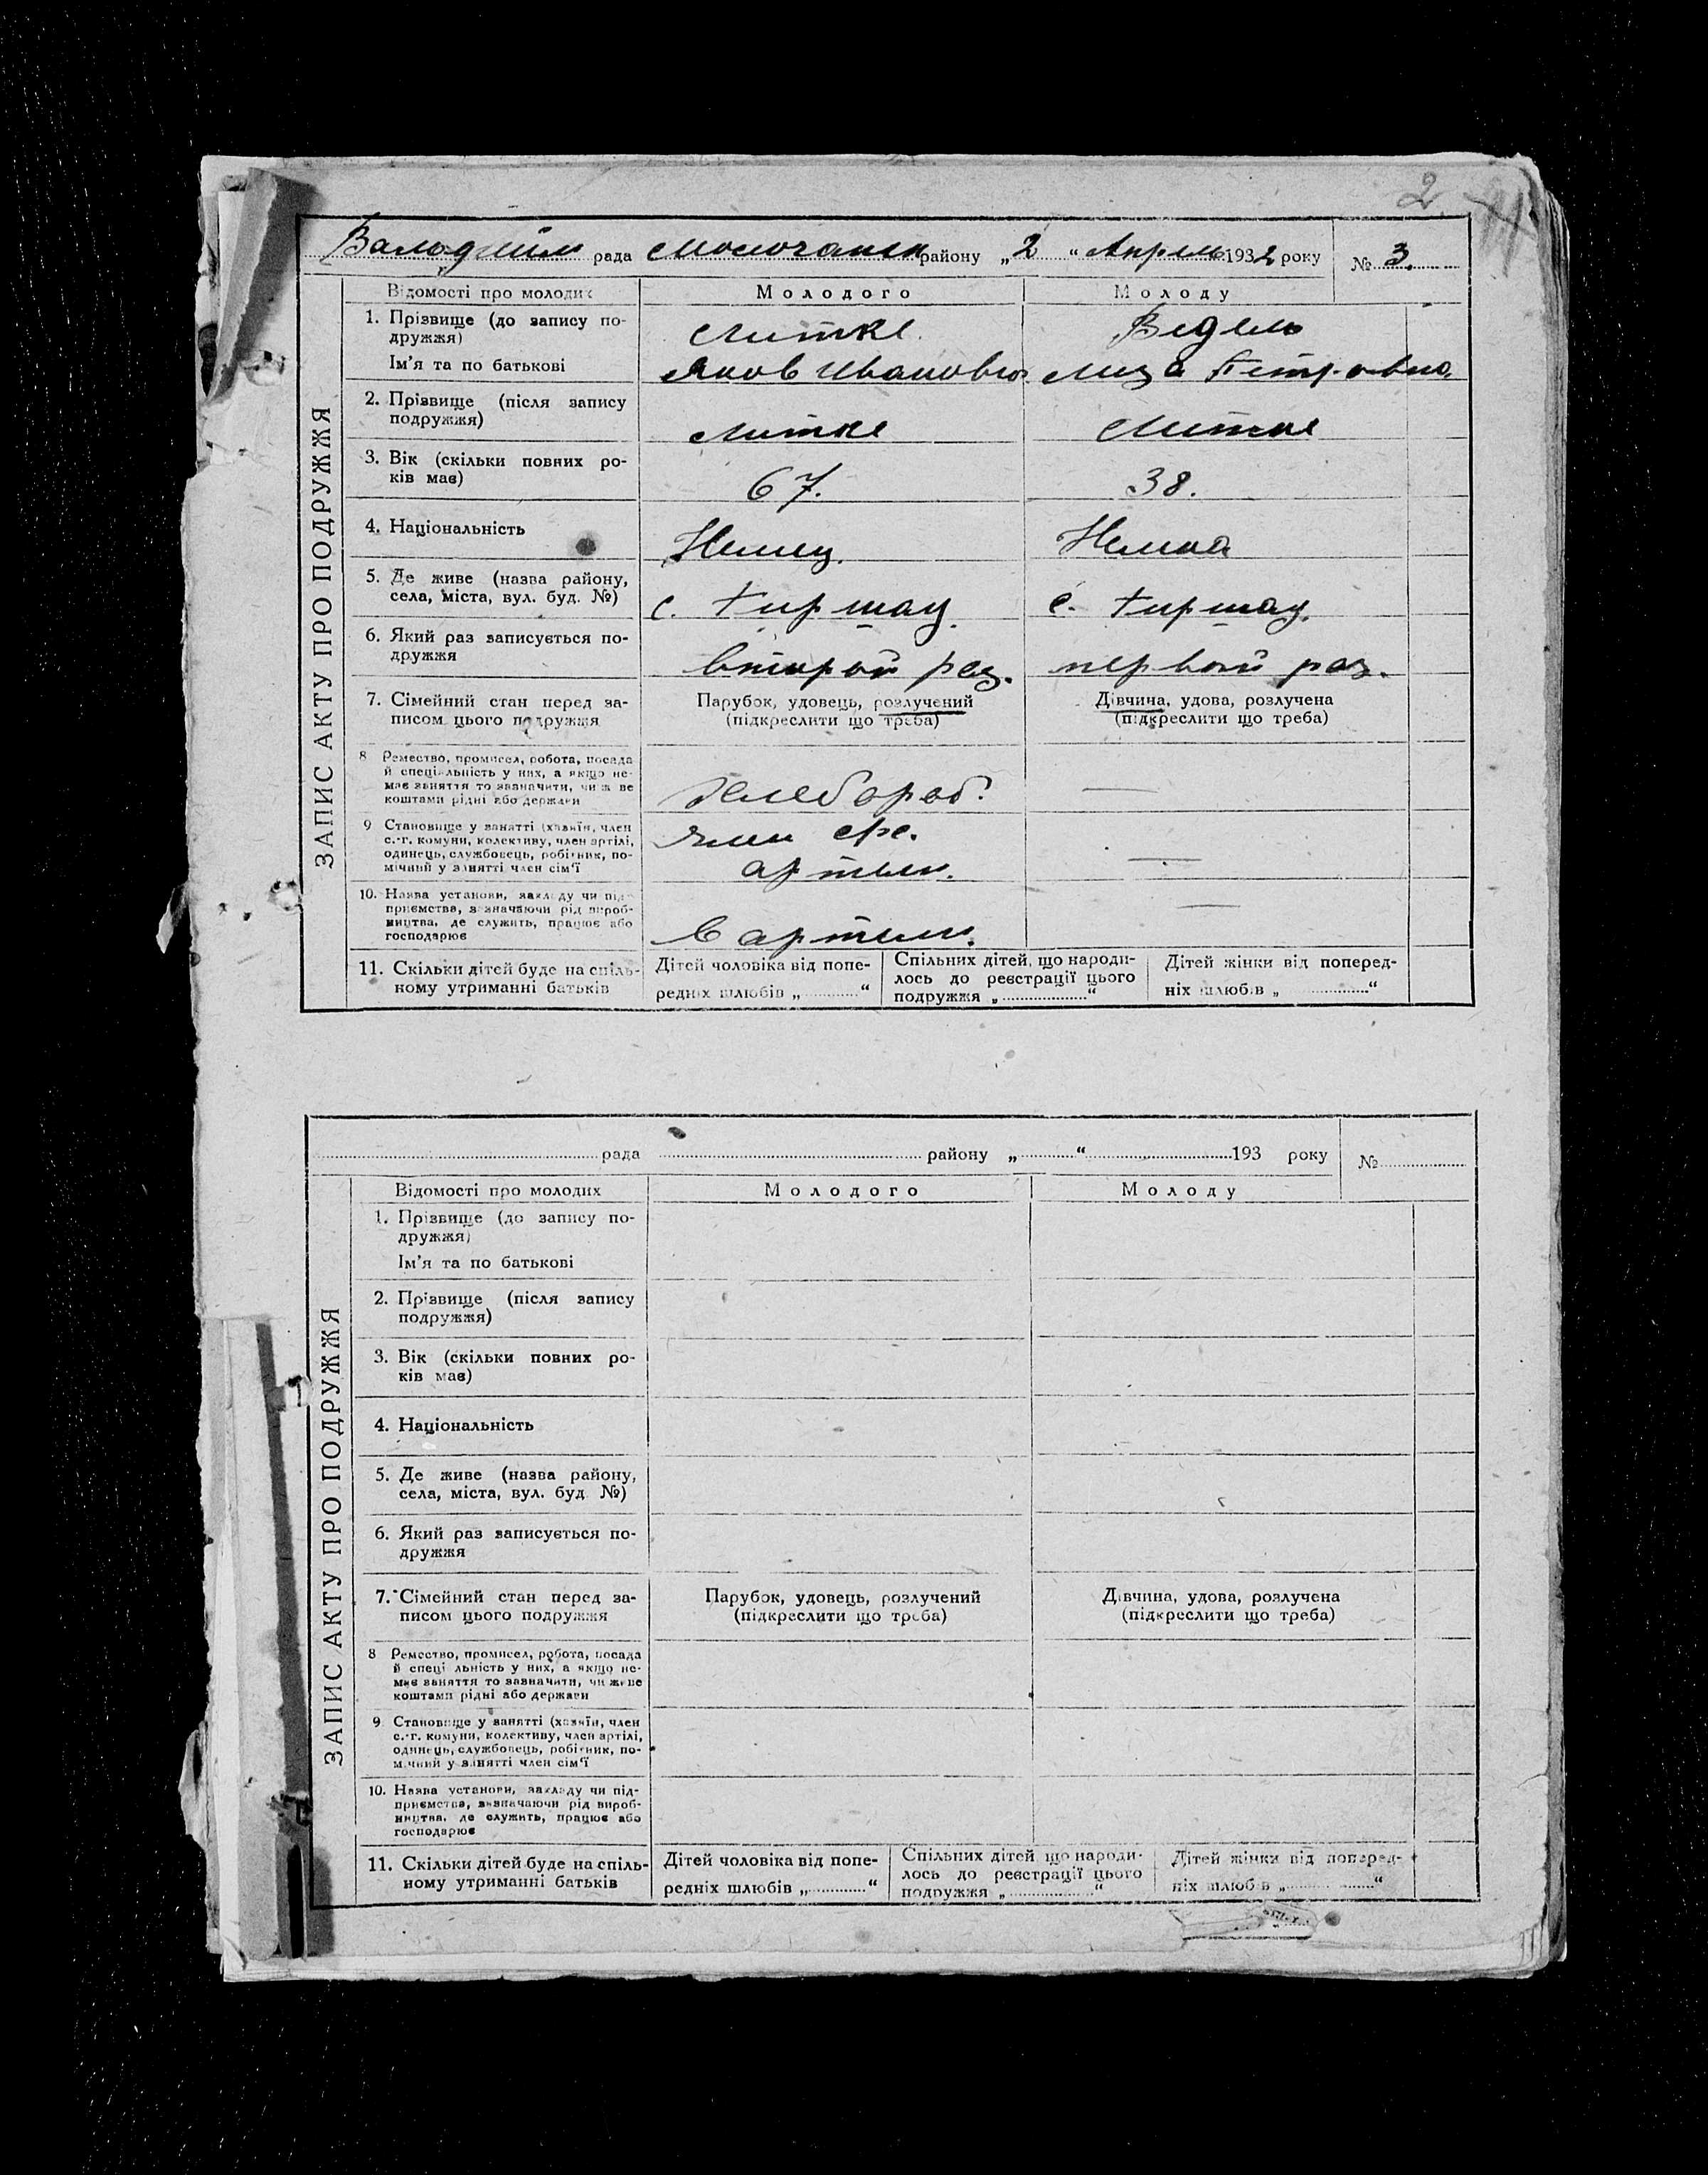 2
рада района „2“ Апрель 1932 року № 3.
ЗАПИС АКТУ ПРО ПОДРУЖЖЯ
Відомості про молодих
Молодого
Молоду
1. Прізвище (до запису по-
дружжя)
Литке
Ведель
Ім'я та по батькові
Яков Иванович
Лиза Петровна
2. Прізвище (після запису
подружжя)
Литке
Литке
3. Вік (скільки повних ро-
ків має)
67.
38.
4. Національність
Немец.
Немка
5. Де живе (назва району,
села, міста, вул. буд. №)
с. Гиршау.
с. Гиршау.
6. Який раз записується по-
дружжя
второй раз.
первый раз.
7. Сімейний стан перед за-
писом цього подружжя
Парубок, удовець, розлучений
(підкреслити що треба)
Дівчина, удова, розлучена
(підкреслити що треба)
8 Ремество, промисел, робота, посада
й спеціяльність у них, а якщо не-
має заняття то зазначити, чиїм же
коштами рідні або держави
хлебороб.
—
9 Становище у занятті (хазяїн, член
с.-г. комуни, колективу, член артілі,
одинець, службовець, робітник, по-
мічний у занятті член сім'ї
член
артели.
—
10. Назва установи, закладу чи під-
приємства, зазначаючи рід вироб-
ництва, де служить, працює або
господарює
в артели.
—
11. Скільки дітей буде на спіль-
ному утриманні батьків
Дітей чоловіка від попе-
редніх шлюбів „ “
Спільних дітей, що народи-
лось до реєстрації цього
подружжя „ “
Дітей жінки від поперед-
ніх шлюбів „ “
рада району „ “ 193 року №
ЗАПИС АКТУ ПРО ПОДРУЖЖЯ
Відомості про молодих
Молодого
Молоду
1. Прізвище (до запису по-
дружжя)
Ім'я та по батькові
2. Прізвище (після запису
подружжя)
3. Вік (скільки повних ро-
ків має)
4. Національність
5. Де живе (назва району,
села, міста, вул. буд. №)
6. Який раз записується по-
дружжя
7. Сімейний стан перед за-
писом цього подружжя
Парубок, удовець, розлучений
(підкреслити що треба)
Дівчина, удова, розлучена
(підкреслити що треба)
8 Ремество, промисел, робота, посада
й спеціяльність у них, а якщо не-
має заняття то зазначити, чи живе
коштами рідні або держави
9 Становище у занятті (хазяїн, член
с.-г. комуни, колективу, член артілі,
одинець, службовець, робітник, по-
мічний у занятті член сім'ї
10. Назва установи, закладу чи під-
приємства, зазначаючи рід вироб-
ництва, де служить, працює або
господарює
11. Скільки дітей буде на спіль-
ному утриманні батьків
Дітей чоловіка від попе-
редніх шлюбів „ “
Спільних дітей, що народи-
лось до реєстрації цього
подружжя „ “
Дітей жінки від поперед-
ніх шлюбів „ “